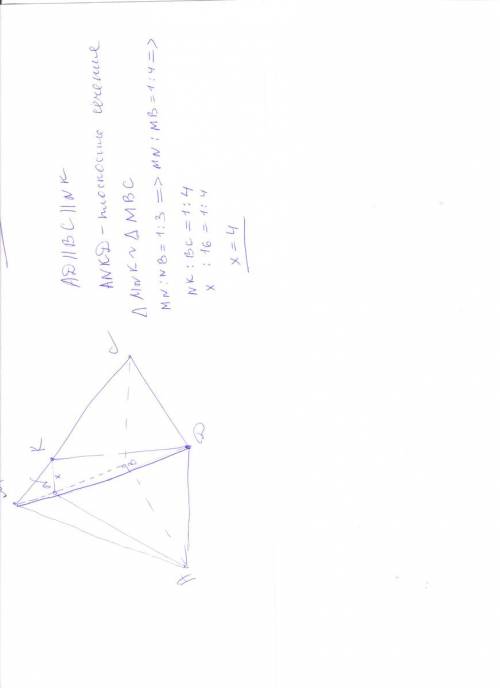 AD || BC || NK
ANKD - плоскость сечения
△ MNK ~ △ MBC
MN : NB = 1 : 3 => MN : MB = 1 : 4 =>
NK : BC = 1 : 4
x : 16 = 1 : 4
x = 4
M
N
x
K
B
C
A
D